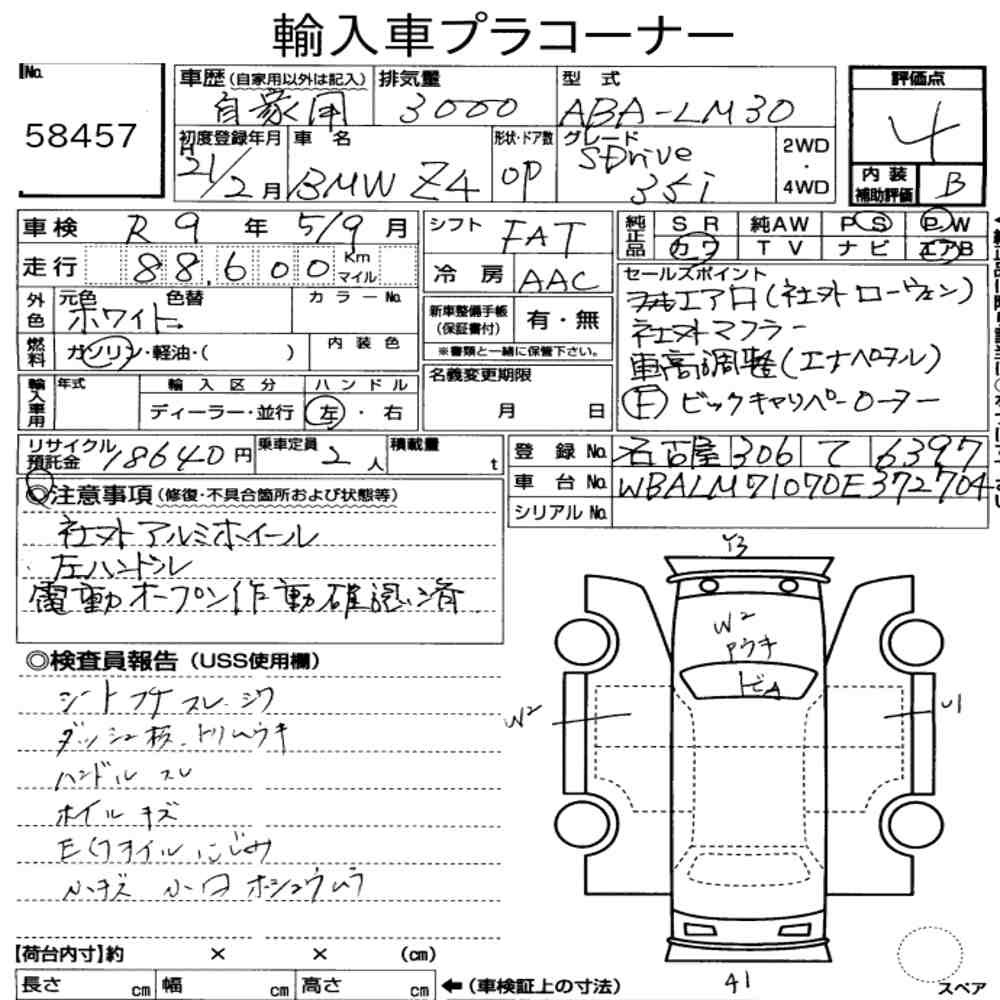 輸入車プラコーナー
No.
58457
車歴(自家用以外は記入) 自家用
排気量 3000
型式 ABA-LM30
評価点 4
内装補助評価 B
初度登録年月 H 21/2月
車名 BMW Z4
形状・ドア数 OP
グレード SDrive 35i
2WD・4WD
車検 R 9年 5/9月
シフト FAT
純正品 SR 純AW PS PW
カワ TV ナビ エアB
走行 88,600 Km マイル
冷房 AAC
外色 元色 色替 ホワイト
カラーNo.
新車整備手帳(保証書付) 有・無
※書類と一緒に保管下さい。
燃料 ガソリン・軽油・( )
内装色
セールスポイント
エアロ(社外 ローヴェン)
社外マフラー
車高調整(エナペタル)
Ⓕ ビックキャリパーローター
輸入車用 年式
輸入区分 ディーラー・並行
ハンドル 左・右
名義変更期限 月 日
リサイクル預託金 18640円
乗車定員 2人
積載量 t
登録No. 名古屋 306 て 6397
車台No. WBALM71070E372704
シリアルNo.
◎注意事項(修復・不具合箇所および状態等)
社外アルミホイール
左ハンドル
電動オープン作動確認済
◎検査員報告(USS使用欄)
シートコゲ スレ シワ
ダッシュ板、トリムウキ
ハンドル スレ
ホイル キズ
E(オイルにじみ
小キズ 小凹 ホシュウムラ
Y3
W2
Pウキ
トビA
W2
U1
A1
【荷台内寸】約 × × (cm)
長さ cm 幅 cm 高さ cm
←(車検証上の寸法)
スペア